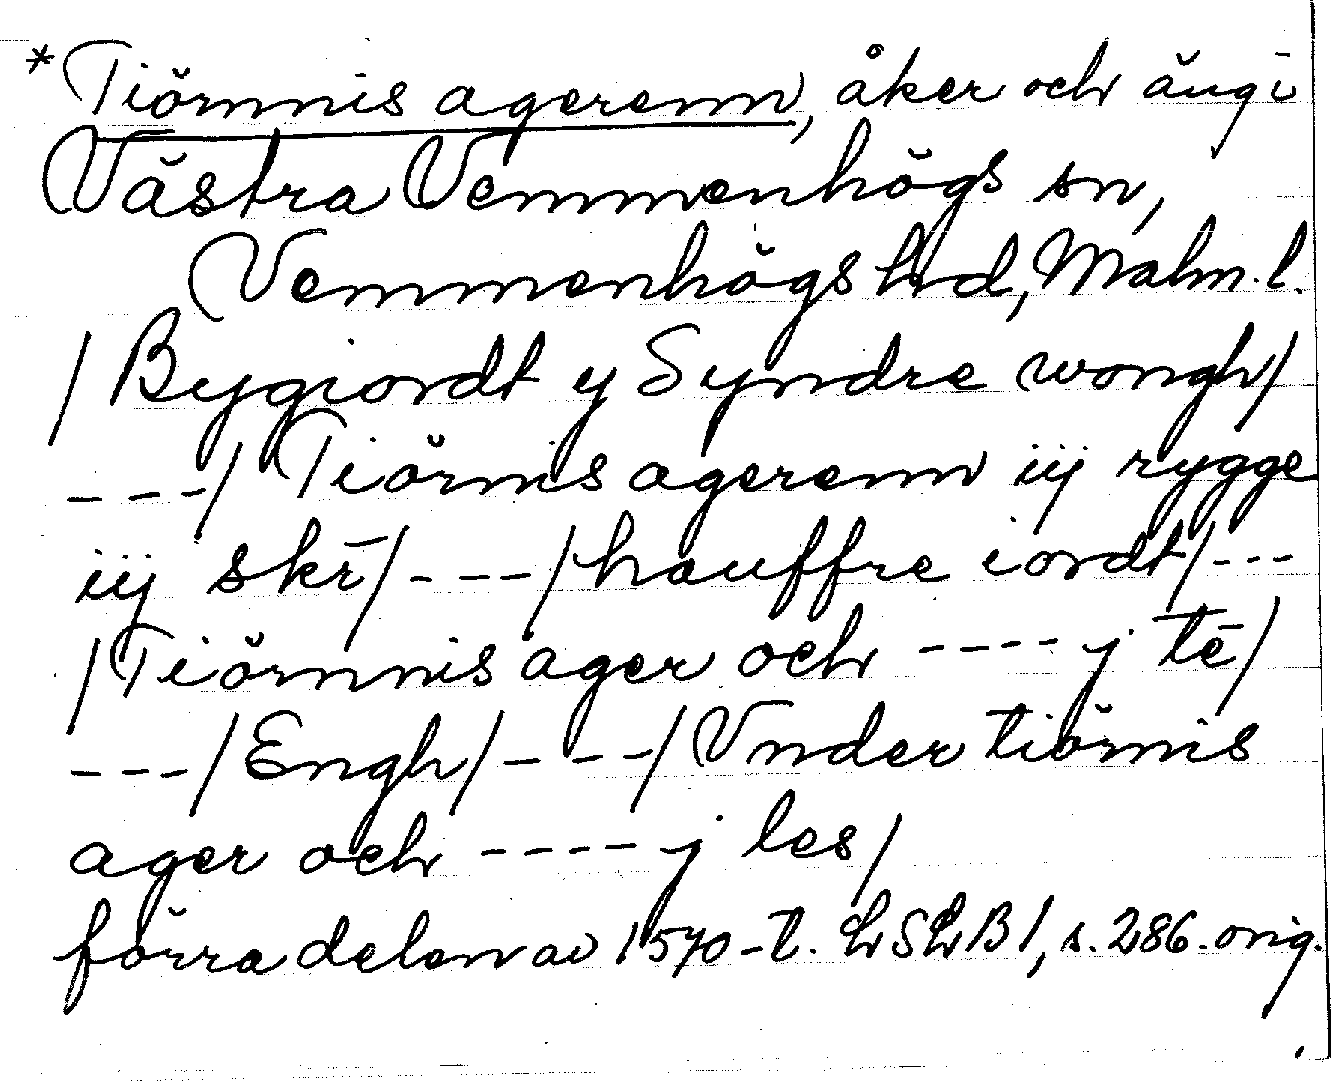 *Tiörnnis agerenn, åker och äng i
Västra Vemmenhögs sn,
Vemmenhögs hrd, Malm. l.
/Bygiordt y Syndre wongh/
---/Tiörnis agerenn iij rygge
iij skr̄/---/hauffre iordt/---
/Tiörnnis ager och ---- j tē/
---/Engh/---/Vnder tiörnis
ager och ---- j les/
förra delen av 1570-t. LSLB 1, s. 286. orig.